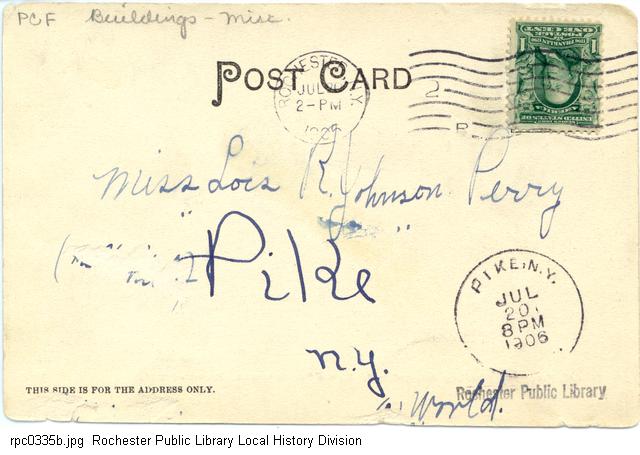 PCF Buildings - Misc.
POST CARD
ROCHESTER, N.Y.
JUL
2-PM
1906
2
R
Miss Lois R. Johnson Perry
" "
Pike
N.Y.
" World.
PIKE, N.Y.
JUL
20
8PM
1906
THIS SIDE IS FOR THE ADDRESS ONLY.
Rochester Public Library
rpc0335b.jpg Rochester Public Library Local History Division